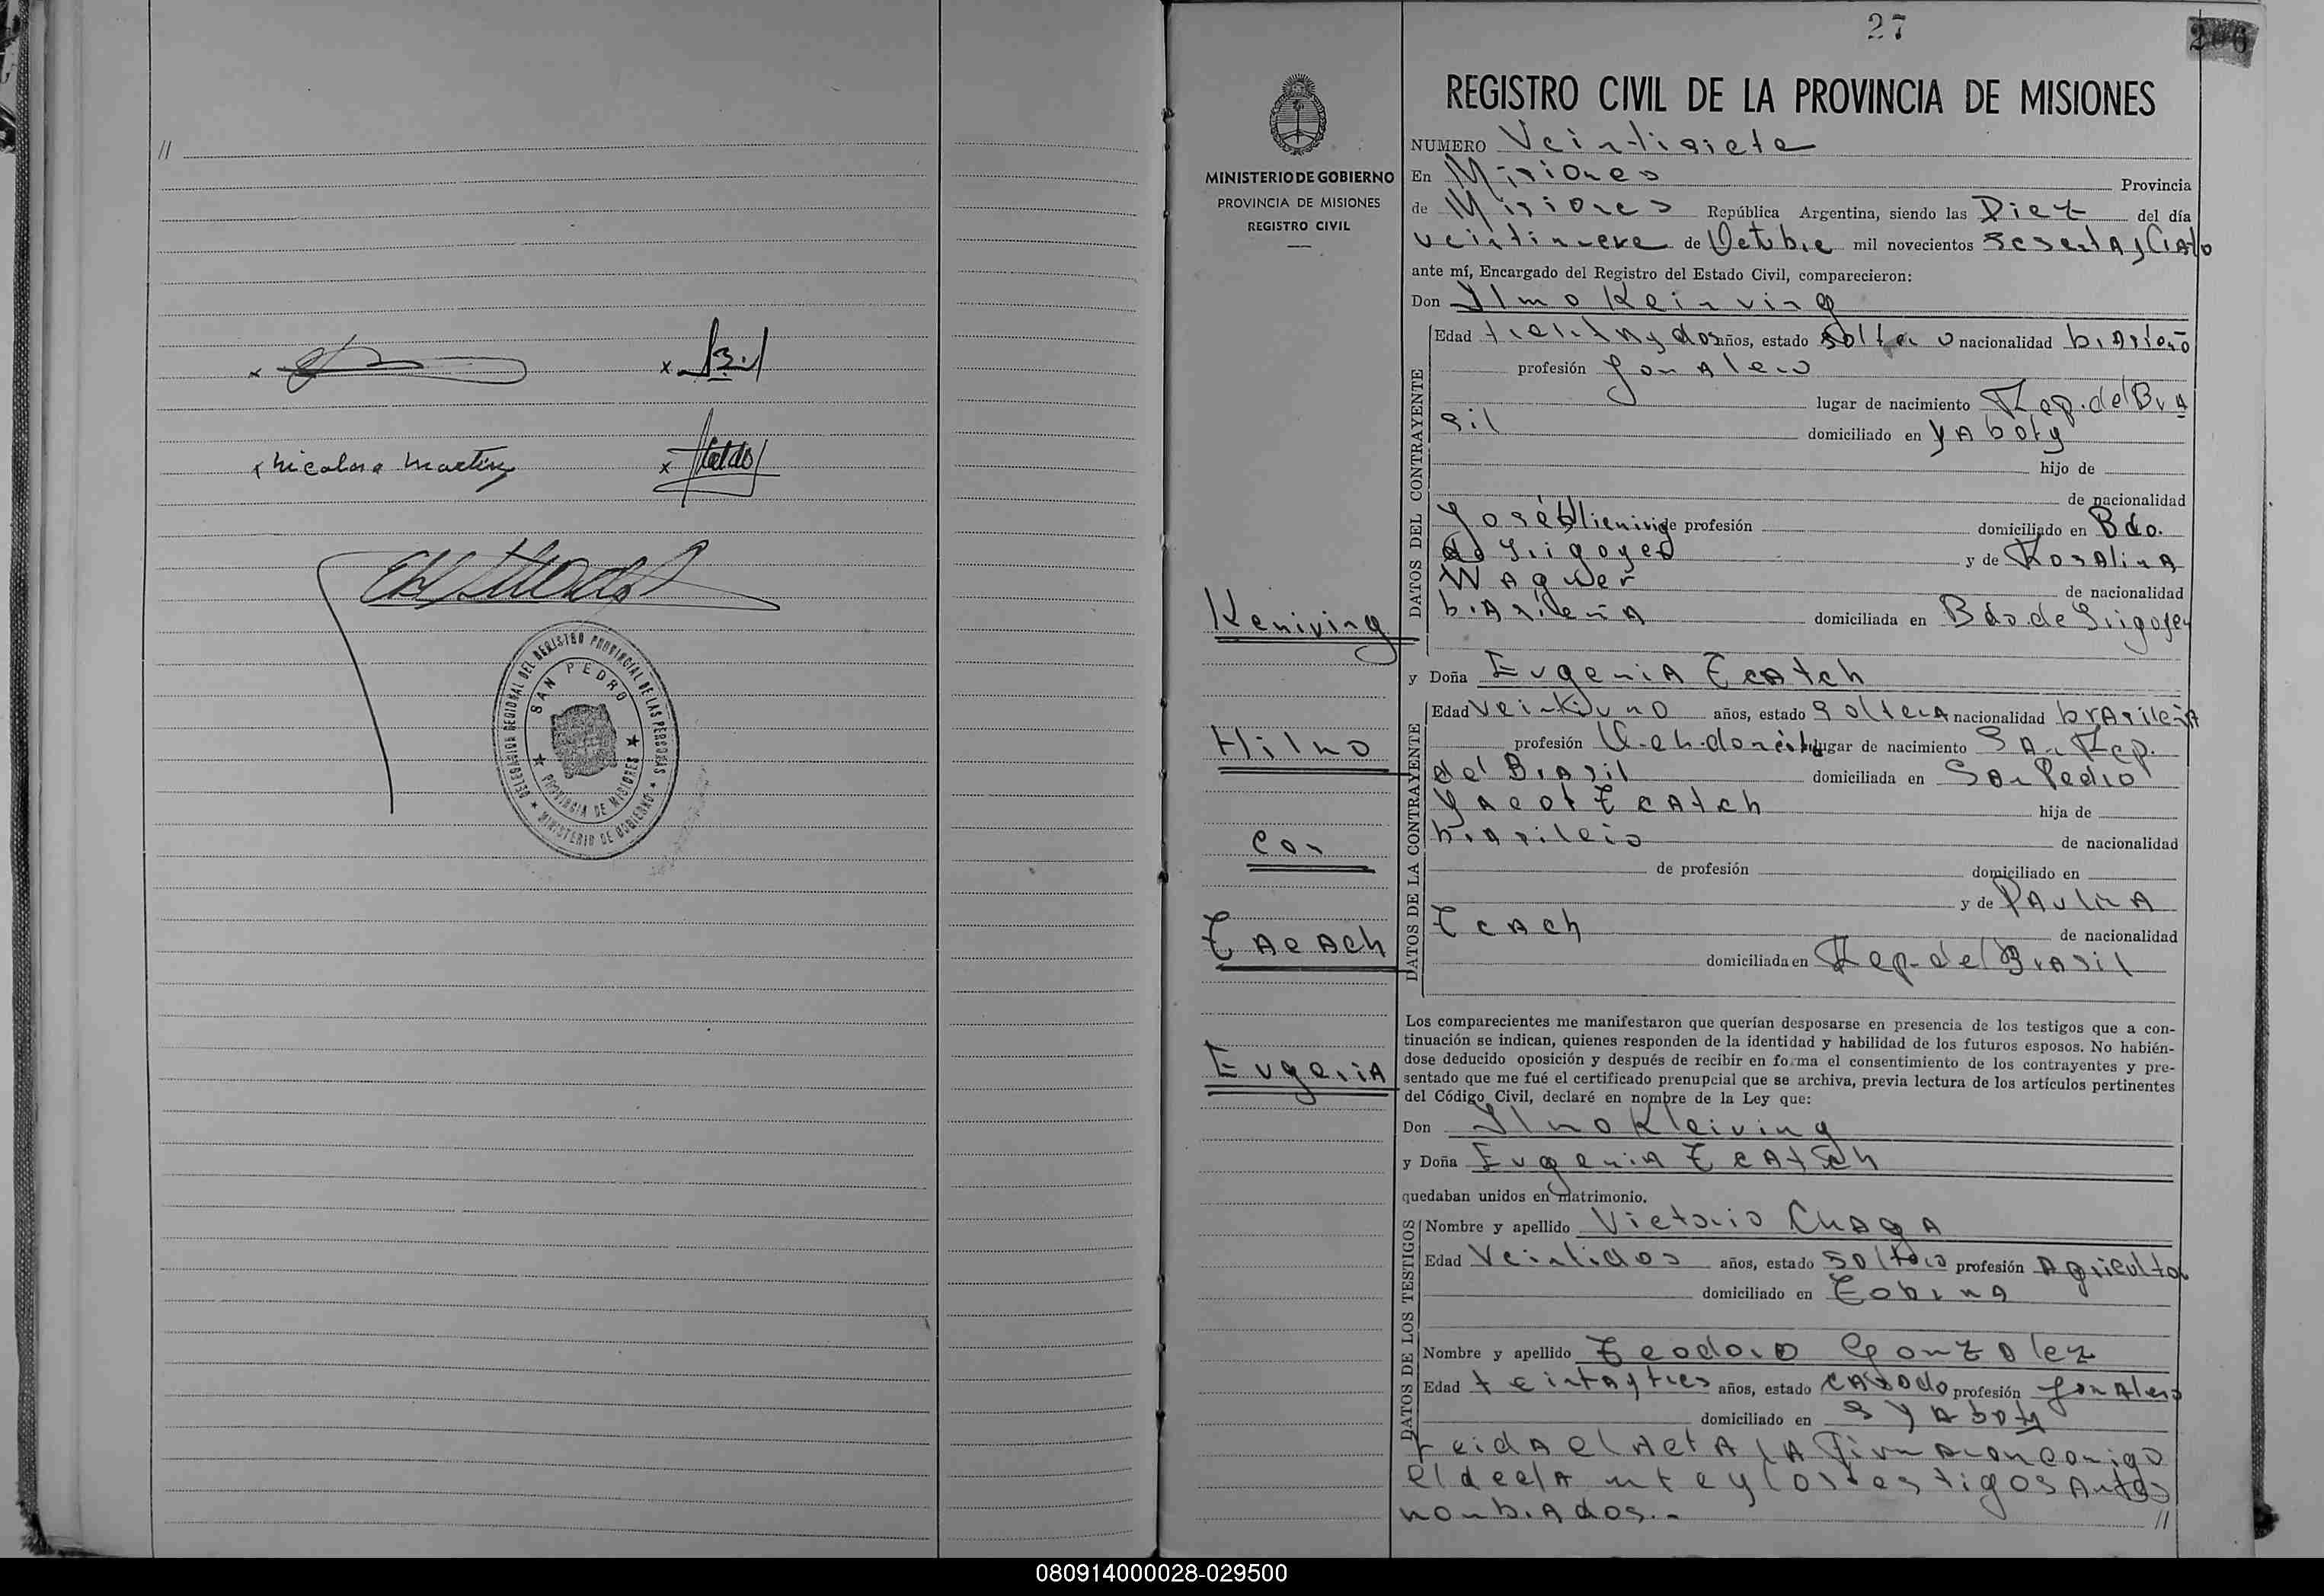 //
x
x
x Nicolasa Martinez
x
DELEGACION REGIONAL DEL REGISTRO PROVINCIAL DE LAS PERSONAS
SAN PEDRO
PROVINCIA DE MISIONES
MINISTERIO DE GOBIERNO
27
206
MINISTERIO DE GOBIERNO
PROVINCIA DE MISIONES
REGISTRO CIVIL
Keniving
Hilno
Con
Tacach
Eugenia
REGISTRO CIVIL DE LA PROVINCIA DE MISIONES
NUMERO Veintisiete
En Misiones Provincia
de Misiones República Argentina, siendo las Diez del día
veintinueve de Octubre mil novecientos
ante mí, Encargado del Registro del Estado Civil, comparecieron:
Don Ylmo Keinving
DATOS DEL CONTRAYENTE
Edad treintaydos años, estado soltero nacionalidad
profesión Jonalero
lugar de nacimiento Rep. del Bra
sil domiciliado en Yaboty
hijo de
de nacionalidad
José de profesión domiciliado en Bdo.
de Yrigoyen y de Rosalina
Wagner de nacionalidad
brasileña domiciliada en Bdo. de Yrigoyen
y Doña Eugenia Tcatch
DATOS DE LA CONTRAYENTE
Edad veintiuno años, estado soltera nacionalidad brasileña
profesión lugar de nacimiento San Rep.
del Brasil domiciliada en San Pedro
Yacot Tcatch hija de
brasileio de nacionalidad
de profesión domiciliado en
y de Paulina
Tcach de nacionalidad
domiciliada en Rep. del Brasil
Los comparecientes me manifestaron que querían desposarse en presencia de los testigos que a con-
tinuación se indican, quienes responden de la identidad y habilidad de los futuros esposos. No habién-
dose deducido oposición y después de recibir en forma el consentimiento de los contrayentes y pre-
sentado que me fué el certificado prenupcial que se archiva, previa lectura de los artículos pertinentes
del Código Civil, declaré en nombre de la Ley que:
Don Ylno Kleiving
y Doña Eugenia Tcatch
quedaban unidos en matrimonio.
DATOS DE LOS TESTIGOS
Nombre y apellido Victorio Chaga
Edad Veintidos años, estado soltero profesión Agricultor
domiciliado en Tobuna
Nombre y apellido Teodoro Gonzalez
Edad teintaytres años, estado casado profesión Jonalero
domiciliado en
Leida el Acta la firmaron conmigo
el declarante y los testigos antes
nombrados.-
//
080914000028-029500